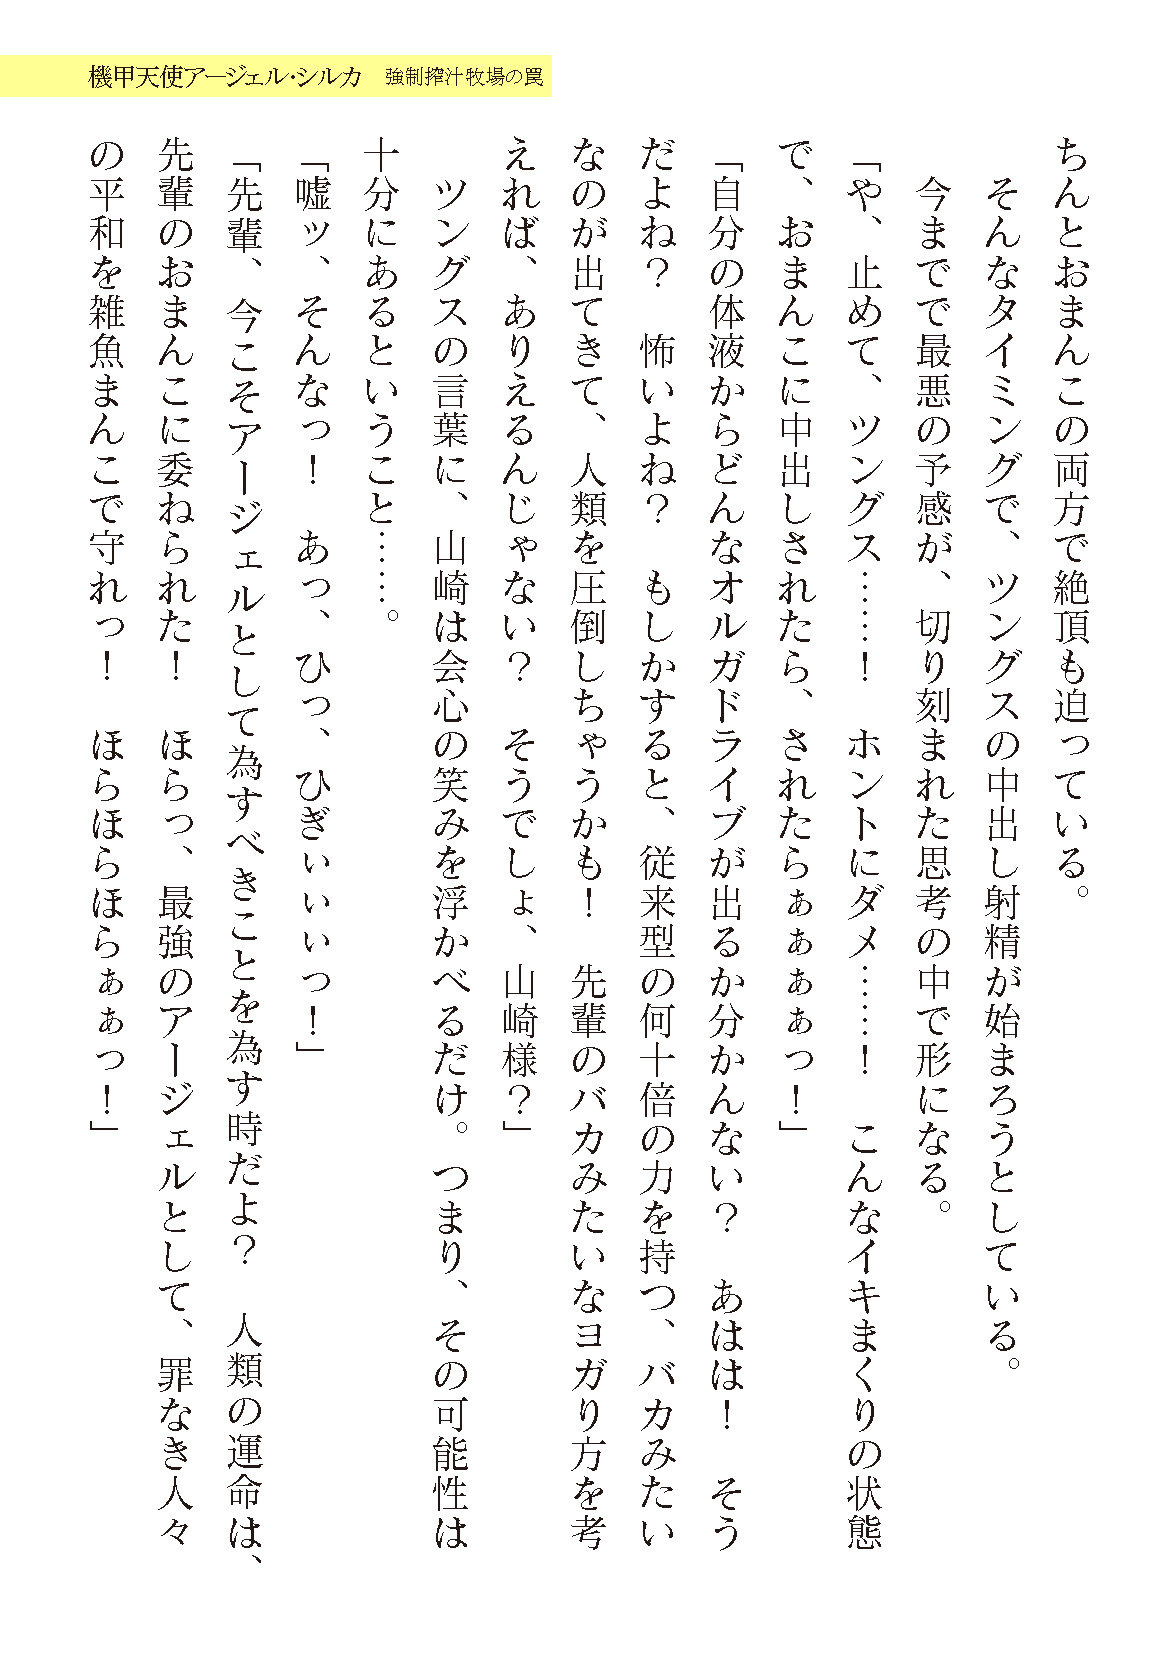 機甲天使アージェル・シルカ　強制搾汁牧場の罠
ちんとおまんこの両方で絶頂も迫っている。
　そんなタイミングで、ツングスの中出し射精が始まろうとしている。
　今までで最悪の予感が、切り刻まれた思考の中で形になる。
「や、止めて、ツングス……！　ホントにダメ……！　こんなイキまくりの状態
で、おまんこに中出しされたら、されたらぁぁぁぁっ！」
「自分の体液からどんなオルガドライブが出るか分かんない？　あはは！　そう
だよね？　怖いよね？　もしかすると、従来型の何十倍の力を持つ、バカみたい
なのが出てきて、人類を圧倒しちゃうかも！　先輩のバカみたいなヨガり方を考
えれば、ありえるんじゃない？　そうでしょ、山崎様？」
　ツングスの言葉に、山崎は会心の笑みを浮かべるだけ。つまり、その可能性は
十分にあるということ……。
「嘘ッ、そんなっ！　あっ、ひっ、ひぎぃぃぃっ！」
「先輩、今こそアージェルとして為すべきことを為す時だよ？　人類の運命は、
先輩のおまんこに委ねられた！　ほらっ、最強のアージェルとして、罪なき人々
の平和を雑魚まんこで守れっ！　ほらほらほらぁぁっ！」